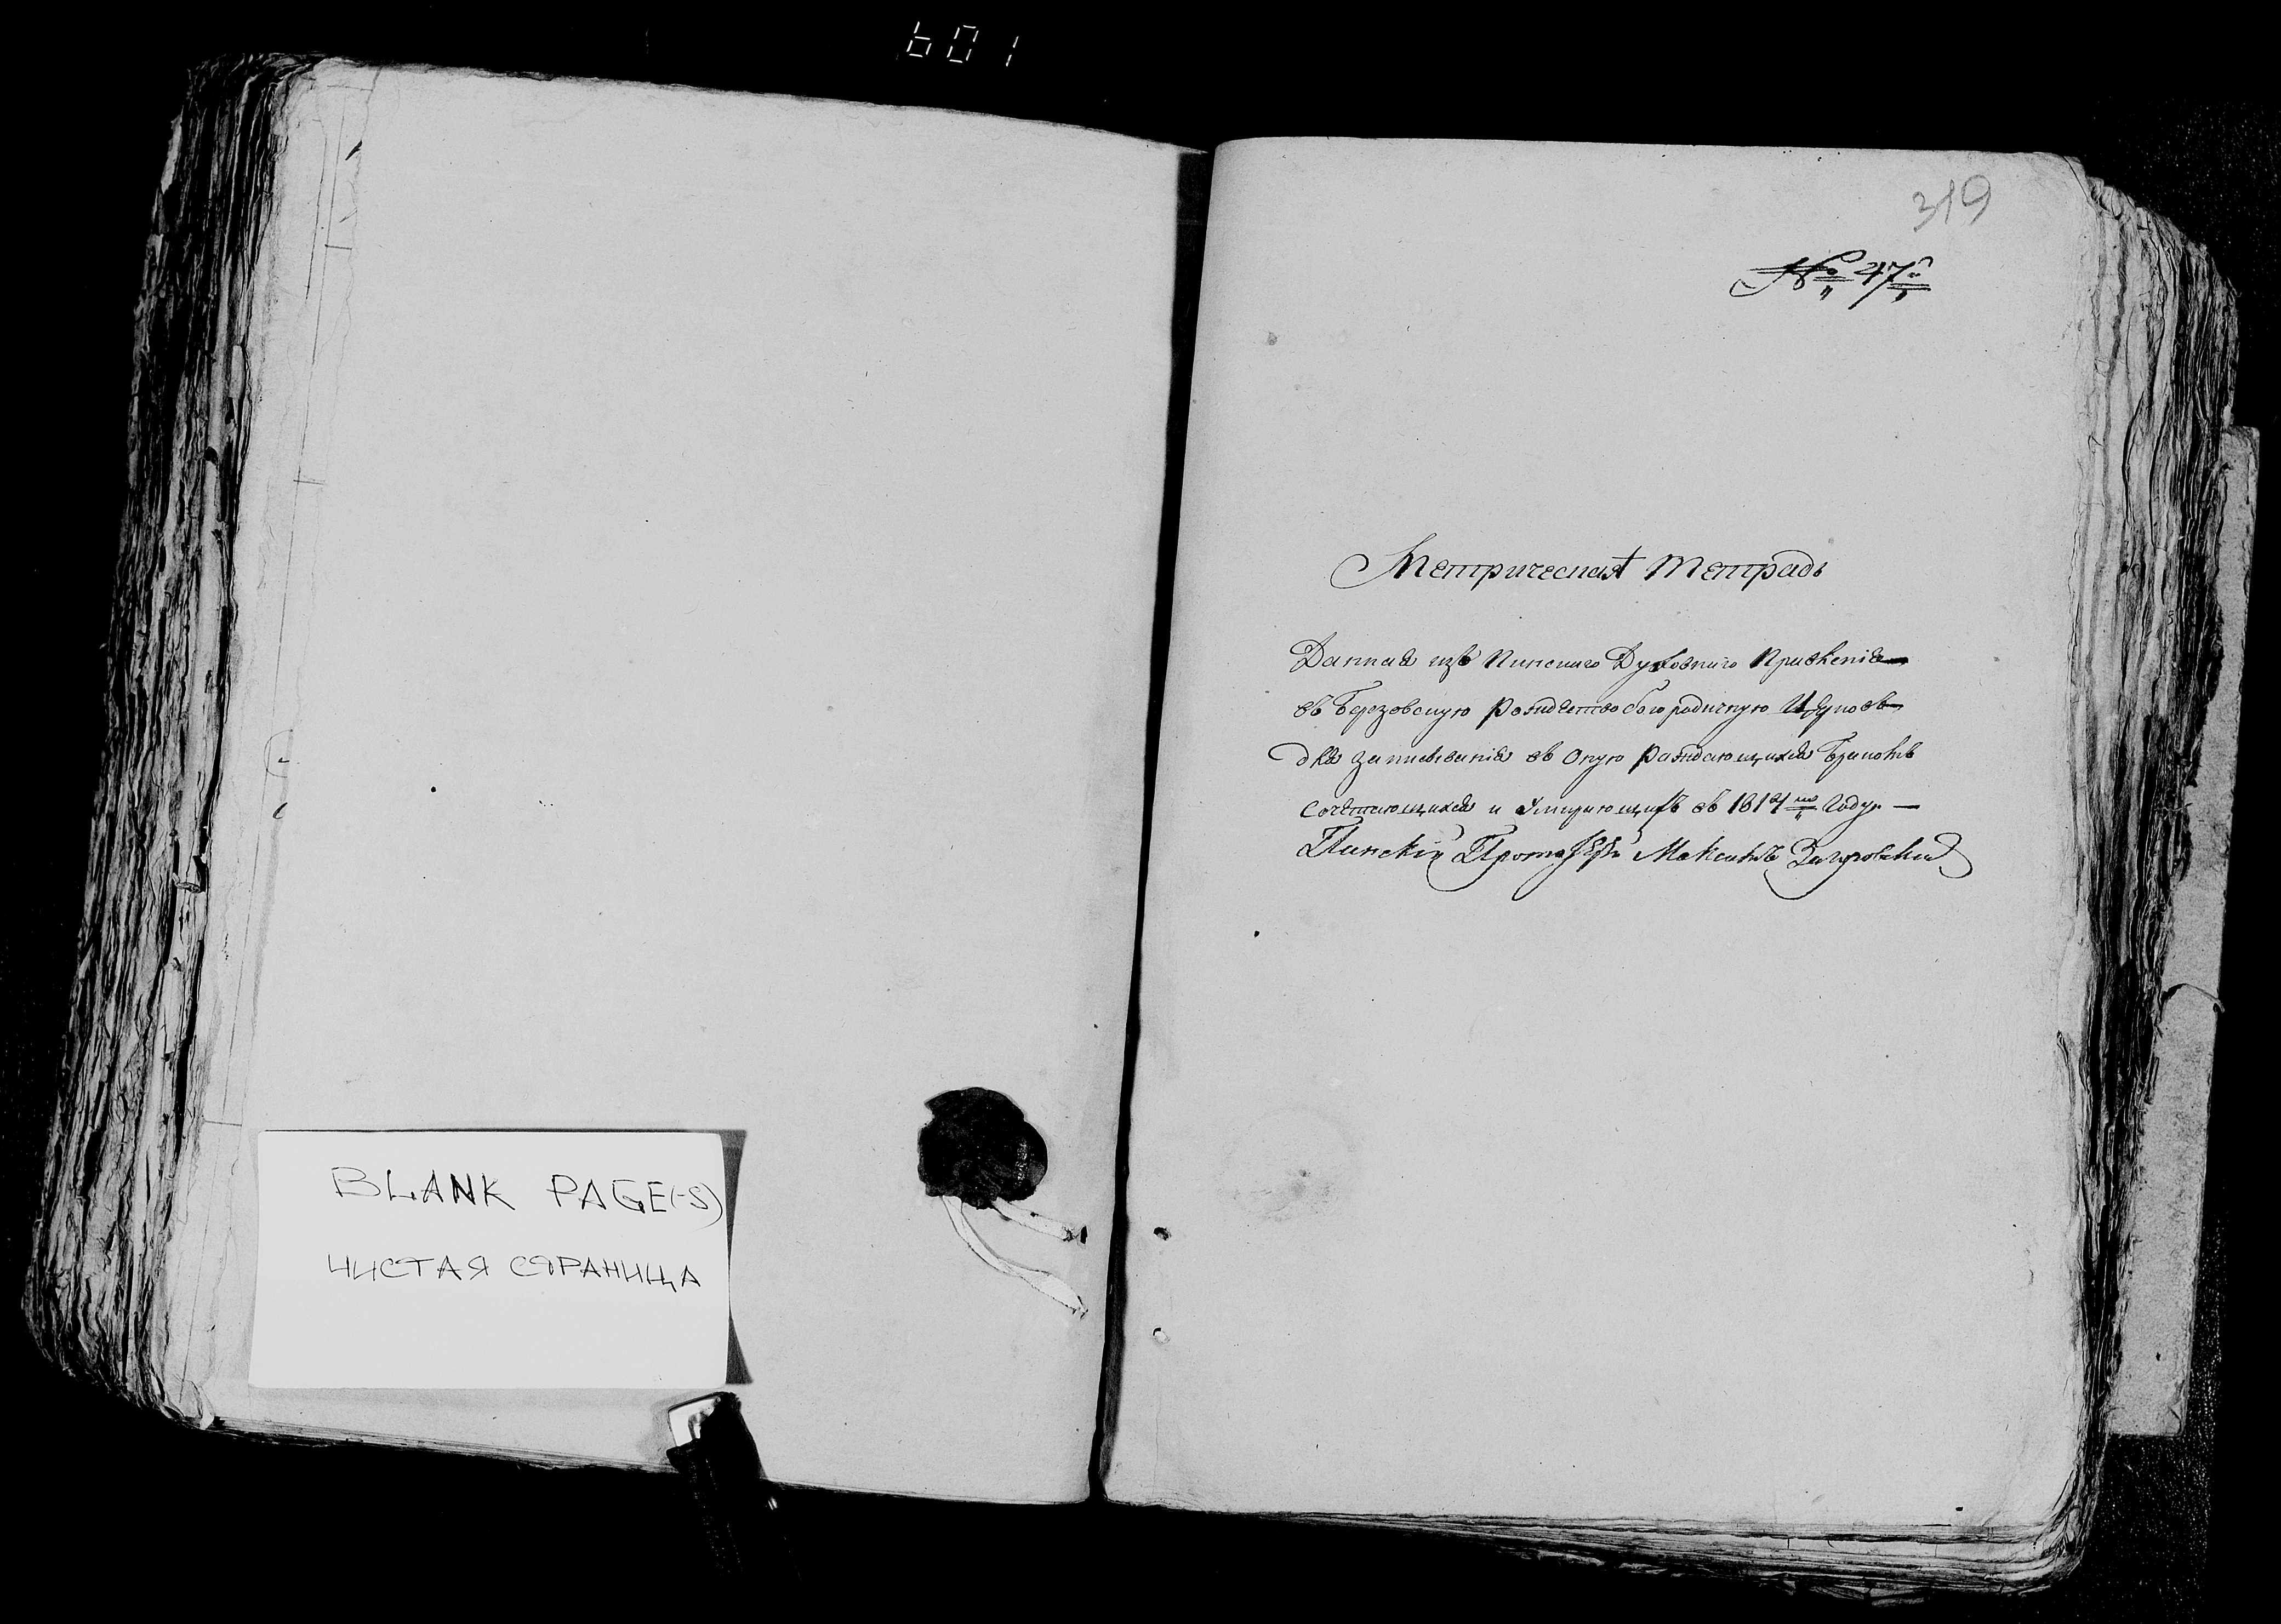 601
BLANK PAGE(-S)
ЧИСТАЯ СТРАНИЦА
319
№ 47й
Метрическая тетрадь
Данная изъ Пинскаго Духовнаго Правленія
въ Березовскую рождество богородичную Церковь
для записыванія въ оную раждающихся Бракомъ
сочетающихся и умирающихъ въ 1814мъ Году
Пинскій Протоіерей Максимъ